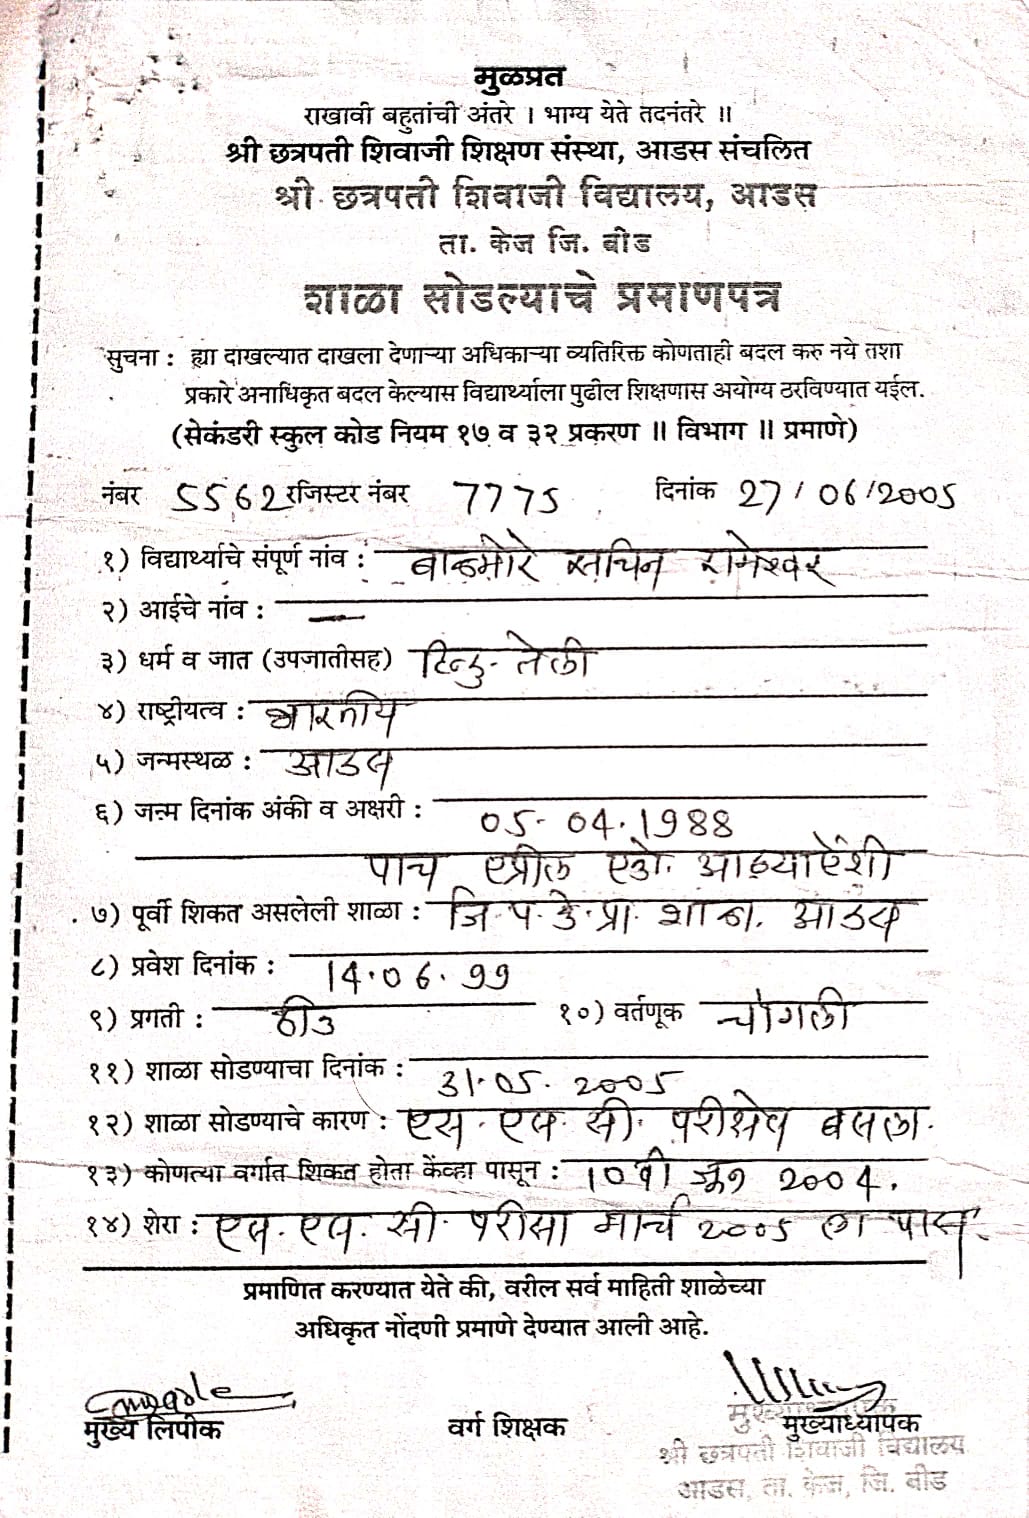 मुळप्रत
राखावी बहुतांची अंतरे । भाग्य येते तदनंतरे ॥
श्री छत्रपती शिवाजी शिक्षण संस्था, आडस संचलित
श्री छत्रपती शिवाजी विद्यालय, आडस
ता. केज जि. बीड
शाळा सोडल्याचे प्रमाणपत्र
सुचना : ह्या दाखल्यात दाखला देणाऱ्या अधिकाऱ्या व्यतिरिक्त कोणताही बदल करु नये तशा
प्रकारे अनाधिकृत बदल केल्यास विद्यार्थ्याला पुढील शिक्षणास अयोग्य ठरविण्यात येईल.
(सेकंडरी स्कुल कोड नियम १७ व ३२ प्रकरण ॥ विभाग ॥ प्रमाणे)
नंबर 5562 रजिस्टर नंबर 7775 दिनांक 27/06/2005
१) विद्यार्थ्याचे संपूर्ण नांव : वाळमोरे सचिन रामेश्वर
२) आईचे नांव : —
३) धर्म व जात (उपजातीसह) हिन्दु - तेली
४) राष्ट्रीयत्व : भारतीय
५) जन्मस्थळ : आडस
६) जन्म दिनांक अंकी व अक्षरी : 05-04.1988
पाच एप्रील एको. आठ्याऐंशी
७) पूर्वी शिकत असलेली शाळा : जि.प.कें.प्रा. शाळा. आडस
८) प्रवेश दिनांक : 14.06.99
९) प्रगती : ठीक १०) वर्तणूक चांगली
११) शाळा सोडण्याचा दिनांक : 31.05.2005
१२) शाळा सोडण्याचे कारण : एस.एस.सी. परीक्षेत बसला.
१३) कोणत्या वर्गात शिकत होता केंव्हा पासून : 10वी जून 2004.
१४) शेरा : एस.एस.सी. परीक्षा मार्च 2005 ला पास.
प्रमाणित करण्यात येते की, वरील सर्व माहिती शाळेच्या
अधिकृत नोंदणी प्रमाणे देण्यात आली आहे.
मुख्य लिपीक वर्ग शिक्षक मुख्याध्यापक
मुख्याध्यापक
श्री छत्रपती शिवाजी विद्यालय
आडस, ता. केज, जि. बीड